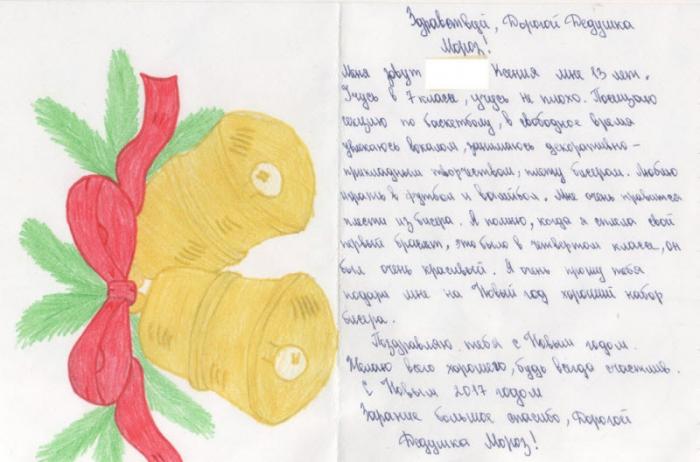 Здравствуй, Дорогой Дедушка
Мороз!
Меня зовут Ксения мне 13 лет.
Учусь в 7 классе, учусь не плохо. Посещаю
секцию по баскетболу, в свободное время
увлекаюсь вокалом, занимаюсь декоративно-
прикладным творчеством, плету бисером. Люблю
играть в футбол и волейбол. Мне очень нравится
плести из бисера. Я помню, когда я сплела свой
первый браслет, это было в четвертом классе, он
был очень красивый. Я очень прошу тебя
подари мне на Новый год хороший набор
бисера.
Поздравляю тебя с Новым годом.
Желаю всего хорошего, будь всегда счастлив.
С Новым 2017 годом
Заранее большое спасибо, Дорогой
Дедушка Мороз!